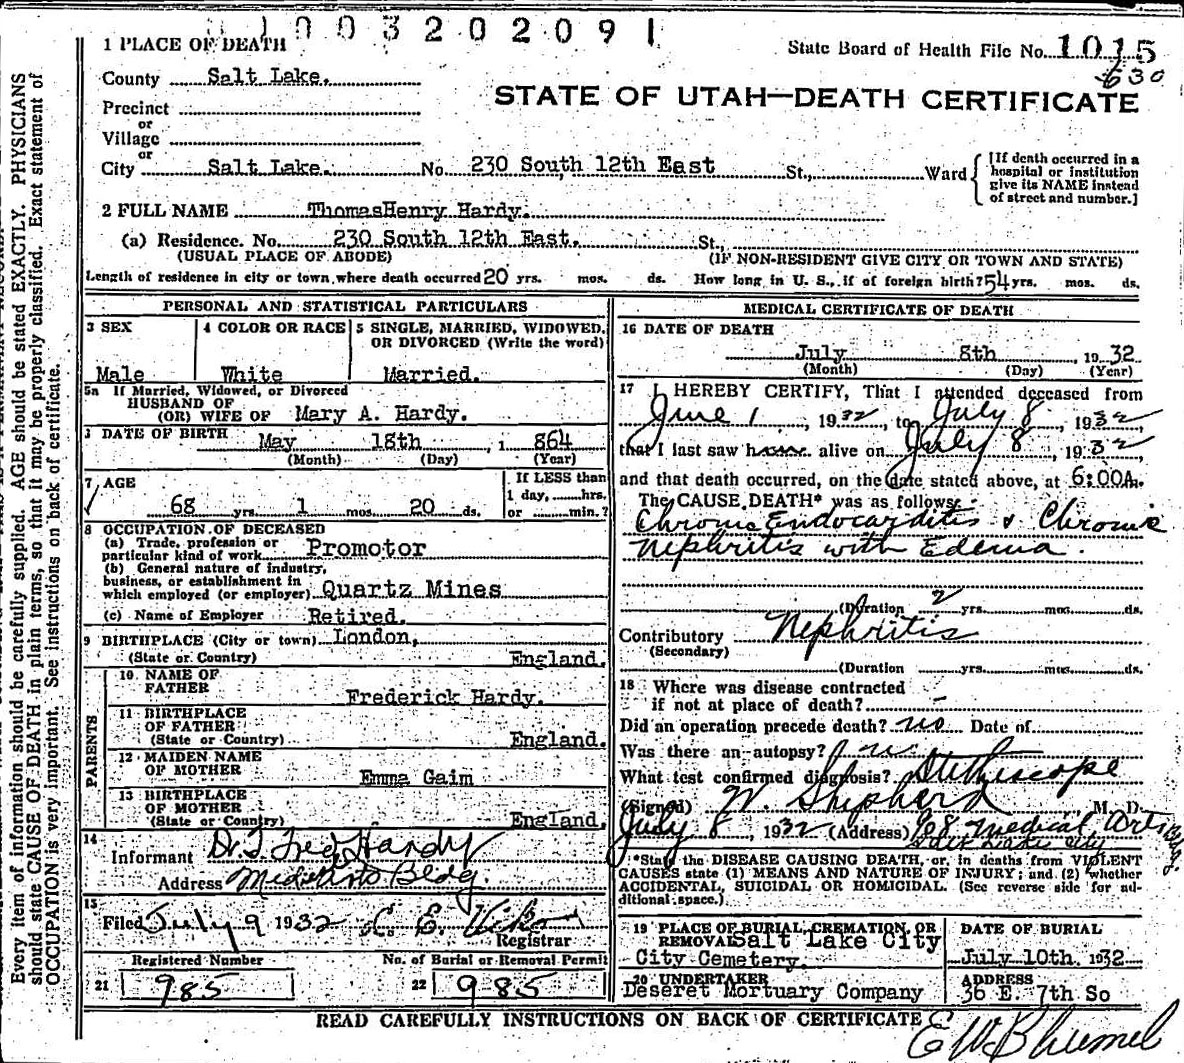 1003202091
1 PLACE OF DEATH
State Board of Health File No. 1015
630
County Salt Lake.
STATE OF UTAH—DEATH CERTIFICATE
Precinct
or
Village
or
City Salt Lake. No. 230 South 12th East St., Ward
[If death occurred in a hospital or institution give its NAME instead of street and number.]
2 FULL NAME ThomasHenry Hardy.
(a) Residence. No. 230 South 12th East. St.,
(USUAL PLACE OF ABODE) (IF NON-RESIDENT GIVE CITY OR TOWN AND STATE)
Length of residence in city or town where death occurred 20 yrs. mos. ds. How long in U. S., if of foreign birth? 54 yrs. mos. ds.
PERSONAL AND STATISTICAL PARTICULARS
3 SEX
Male
4 COLOR OR RACE
White
5 SINGLE, MARRIED, WIDOWED, OR DIVORCED (Write the word)
Married.
5a If Married, Widowed, or Divorced
HUSBAND OF
(OR) WIFE OF Mary A. Hardy.
DATE OF BIRTH May 18th, 1864
(Month) (Day) (Year)
7 AGE
68 yrs. 1 mos. 20 ds.
If LESS than
1 day, hrs.
or min.?
8 OCCUPATION OF DECEASED
(a) Trade, profession or
particular kind of work Promotor
(b) General nature of industry,
business, or establishment in
which employed (or employer) Quartz Mines
(c) Name of Employer Retired.
9 BIRTHPLACE (City or town) London,
(State or Country) England.
PARENTS
10 NAME OF
FATHER Frederick Hardy.
11 BIRTHPLACE
OF FATHER
(State or Country) England.
12 MAIDEN NAME
OF MOTHER Emma Gaim
13 BIRTHPLACE
OF MOTHER
(State or Country) England.
14
Informant Dr. T. Fred Hardy
Address Medic Arts Bldg.
15
Filed July 9 1932 C. E.
Registrar
Registered Number
21 985
No. of Burial or Removal Permit
22 985
MEDICAL CERTIFICATE OF DEATH
16 DATE OF DEATH
July 8th, 1932
(Month) (Day) (Year)
17 I HEREBY CERTIFY, That I attended deceased from
June 1, 1932, to July 8, 1932
that I last saw h alive on July 8, 1932
and that death occurred, on the date stated above, at 6:00A.
The CAUSE DEATH* was as follows:
Chronic Endocarditis & Chronic
Nephritis with Edema.
(Duration 2 yrs. mos. ds.
Contributory Nephritis
(Secondary)
(Duration yrs. mos. ds.
18 Where was disease contracted
if not at place of death? -
Did an operation precede death? no Date of
Was there an autopsy? no
What test confirmed diagnosis? Stethiscope
(Signed) W. Shepherd M. D.
July 8 1932 (Address) 908 Medical Arts Bldg.
Salt Lake City
*State the DISEASE CAUSING DEATH, or, in deaths from VIOLENT
CAUSES state (1) MEANS AND NATURE OF INJURY; and (2) whether
ACCIDENTAL, SUICIDAL OR HOMICIDAL. (See reverse side for additional space.)
19 PLACE OF BURIAL, CREMATION, OR
REMOVAL Salt Lake City
City Cemetery.
DATE OF BURIAL
July 10th. 1932
20 UNDERTAKER
Deseret Mortuary Company
ADDRESS
36 E. 7th So
READ CAREFULLY INSTRUCTIONS ON BACK OF CERTIFICATE
Every item of information should be carefully supplied. AGE should be stated EXACTLY. PHYSICIANS
should state CAUSE OF DEATH in plain terms, so that it may be properly classified. Exact statement of
OCCUPATION is very important. See instructions on back of certificate.